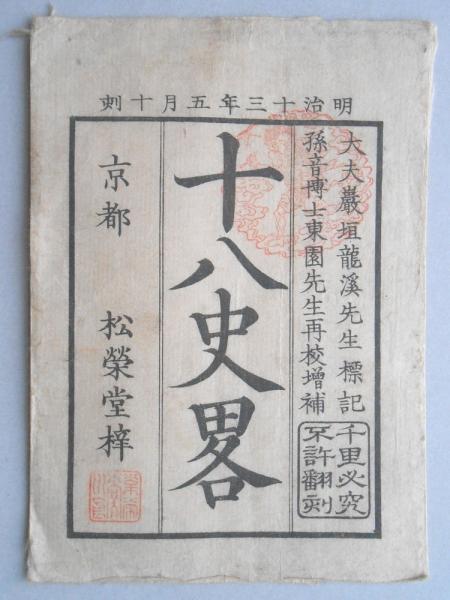 明治十三年五月十刺
大夫巖垣龍溪先生標記
孫音博士東園先生再校增補
千里必究
不許翻刻
十八史畧
京都 松榮堂梓